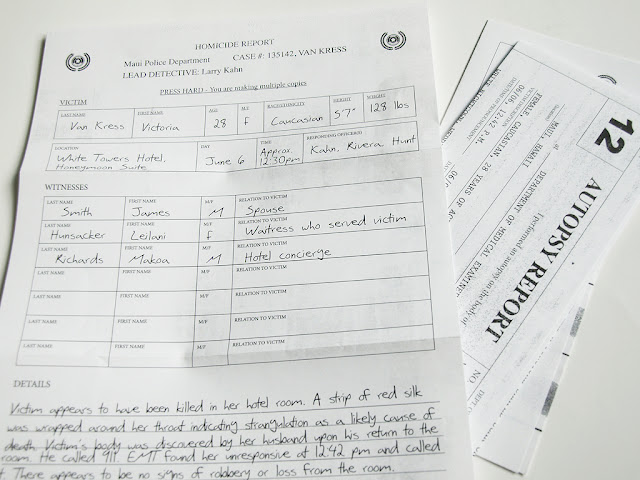 HOMICIDE REPORT
Maui Police Department CASE #: 135142, VAN KRESS
LEAD DETECTIVE: Larry Kahn
PRESS HARD - You are making multiple copies
VICTIM
LAST NAME FIRST NAME AGE M/F RACE/ETHNICITY HEIGHT WEIGHT
Van Kress Victoria 28 f Caucasian 5'7" 128 lbs
LOCATION DAY TIME RESPONDING OFFICER(S)
White Towers Hotel, Honeymoon Suite June 6 Approx. 12:30pm Kahn, Rivera, Hunt
WITNESSES
LAST NAME FIRST NAME M/F RELATION TO VICTIM
Smith James M Spouse
LAST NAME FIRST NAME M/F RELATION TO VICTIM
Hunsacker Leilani f Waitress who served victim
LAST NAME FIRST NAME M/F RELATION TO VICTIM
Richards Makoa M Hotel concierge
LAST NAME FIRST NAME M/F RELATION TO VICTIM
LAST NAME FIRST NAME M/F RELATION TO VICTIM
LAST NAME FIRST NAME M/F RELATION TO VICTIM
LAST NAME FIRST NAME M/F RELATION TO VICTIM
DETAILS
Victim appears to have been killed in her hotel room. A strip of red silk
was wrapped around her throat indicating strangulation as a likely cause of
death. Victim's body was discovered by her husband upon his return to the
room. He called 911. EMT found her unresponsive at 12:42 pm and called
it. There appears to be no signs of robbery or loss from the room.
12
AUTOPSY REPORT
I performed an autopsy on the body of
DEPARTMENT OF MEDICAL EXAMINER
MAUI, HAWAII
FEMALE, CAUCASIAN, 28 YEARS OF AGE
06/06, 12:42 P.M.
NO.